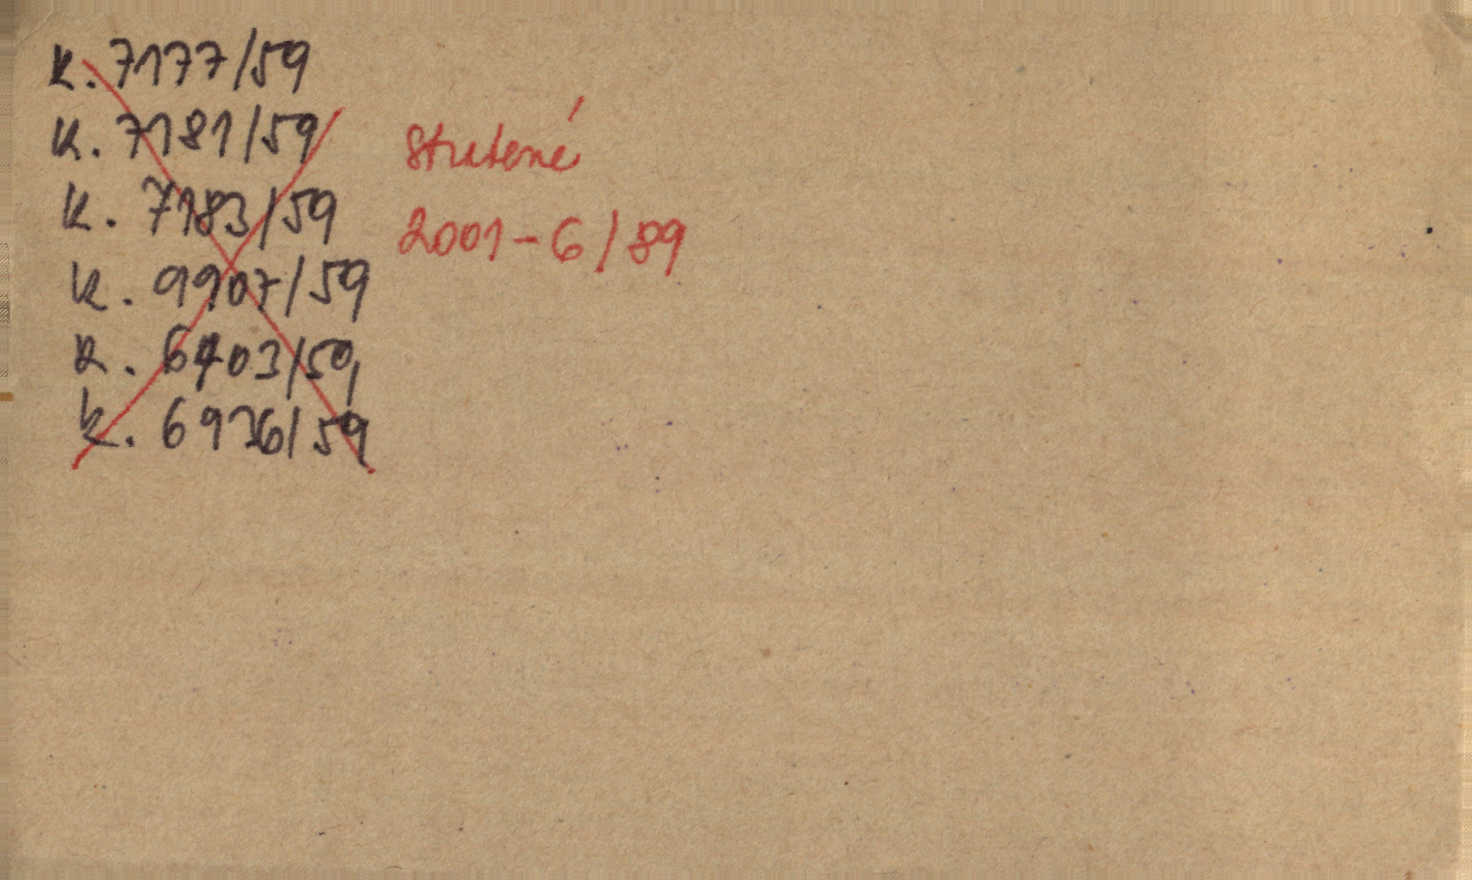 K. 7177/59
K. 7181/59
K. 7183/59
K. 9907/59
K. 6403/59
K. 6936/59
Stratené
2001-6/89